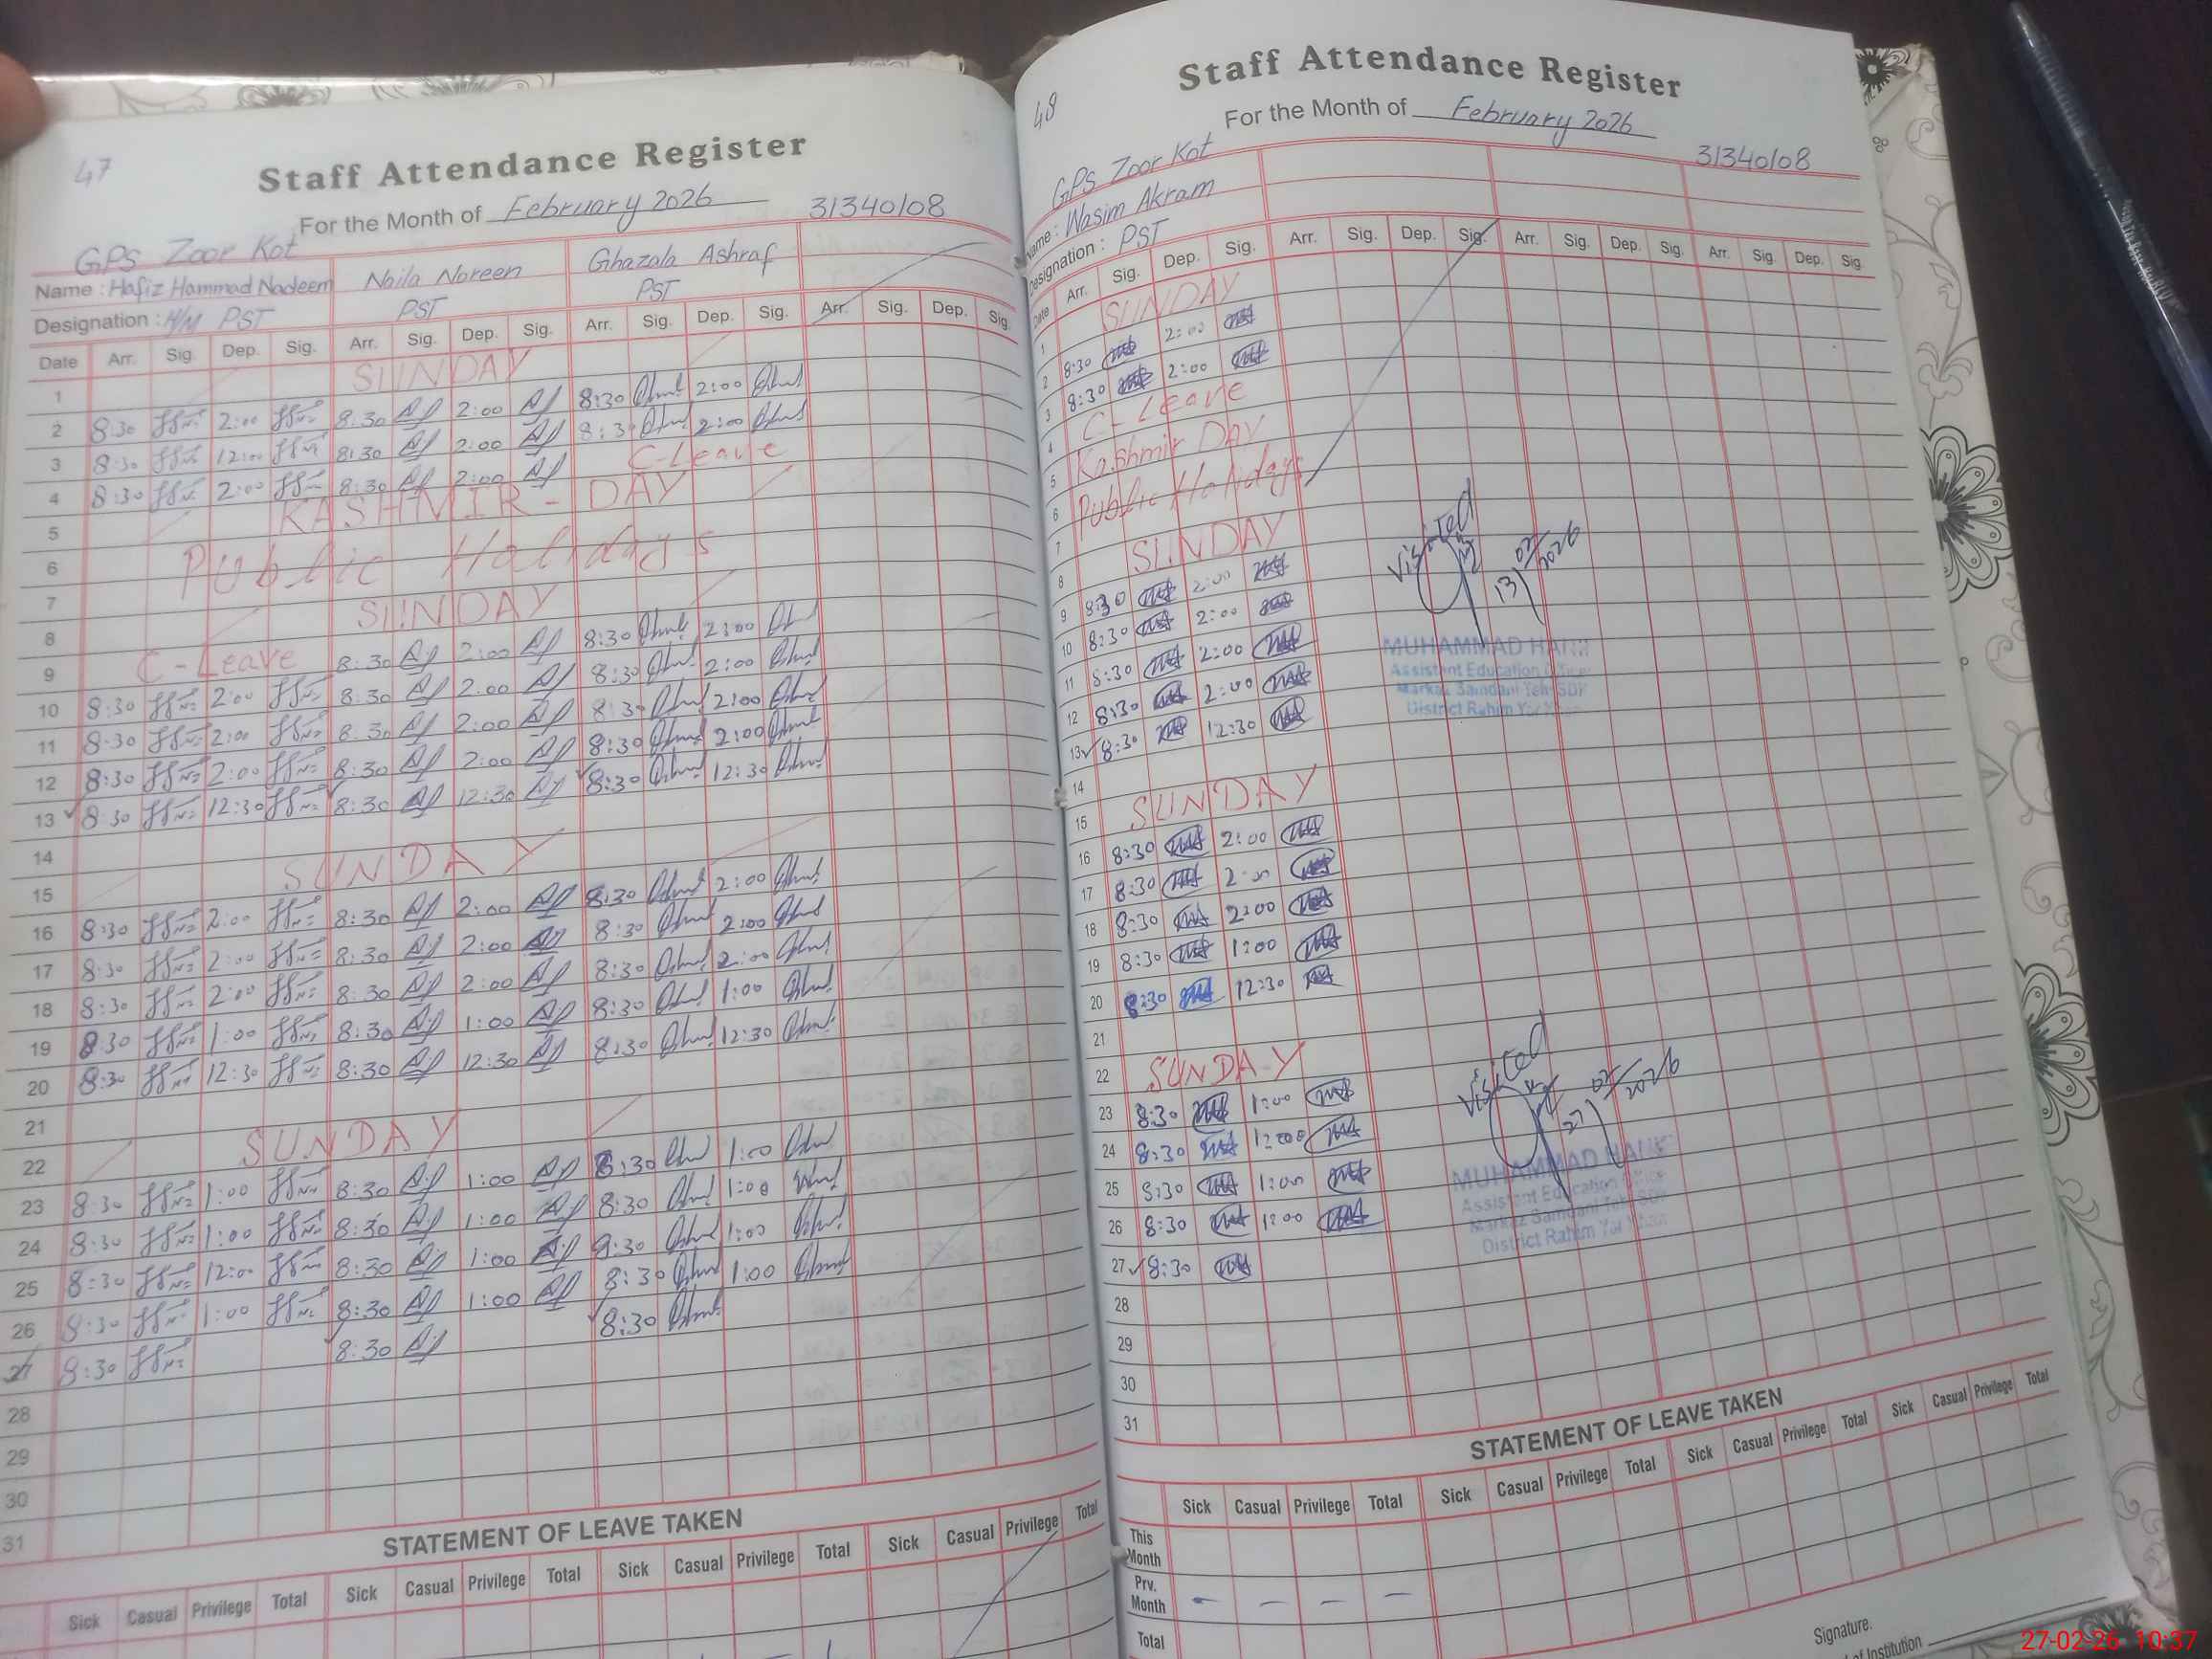 47
Staff Attendance Register
For the Month of February 2026 31340108
GPS Zoor Kot
Name : Hafiz Hammad Nadeem Naila Noreen Ghazala Ashraf
Designation : H/M PST PST PST
Date Arr. Sig. Dep. Sig. Arr. Sig. Dep. Sig. Arr. Sig. Dep. Sig. Arr. Sig. Dep. Sig.
1 SUNDAY
2 8:30 2:00 8:30 2:00 8:30 2:00
3 8:30 12:00 8:30 2:00 8:30 2:00
4 8:30 2:00 8:30 2:00 C-Leave
5 KASHMIR - DAY
6 Public Holidays
7
8 SUNDAY
9 C-Leave 8:30 2:00 8:30 2:00
10 8:30 2:00 8:30 2:00 8:30 2:00
11 8:30 2:00 8:30 2:00 8:30 2:00
12 8:30 2:00 8:30 2:00 8:30 2:00
13 8:30 12:30 8:30 12:30 8:30 12:30
14
15 SUNDAY
16 8:30 2:00 8:30 2:00 8:30 2:00
17 8:30 2:00 8:30 2:00 8:30 2:00
18 8:30 2:00 8:30 2:00 8:30 2:00
19 8:30 1:00 8:30 1:00 8:30 1:00
20 8:30 12:30 8:30 12:30 8:30 12:30
21
22 SUNDAY
23 8:30 1:00 8:30 1:00 8:30 1:00
24 8:30 1:00 8:30 1:00 8:30 1:00
25 8:30 12:00 8:30 1:00 8:30 1:00
26 8:30 1:00 8:30 1:00 8:30 1:00
27 8:30 8:30 8:30
28
29
30
31
STATEMENT OF LEAVE TAKEN
Sick Casual Privilege Total Sick Casual Privilege Total Sick Casual Privilege Total Sick Casual Privilege Total
48
Staff Attendance Register
For the Month of February 2026
GPS Zoor Kot 31340108
Name : Wasim Akram
Designation : PST
Date Arr. Sig. Dep. Sig. Arr. Sig. Dep. Sig. Arr. Sig. Dep. Sig. Arr. Sig. Dep. Sig.
1 SUNDAY
2 8:30 2:00
3 8:30 2:00
4 C-Leave
5 Kashmir Day
6 Public Holidays
7
8 SUNDAY
9 8:30 2:00
10 8:30 2:00
11 8:30 2:00
12 8:30 2:00
13 8:30 12:30
14
15 SUNDAY
16 8:30 2:00
17 8:30 2:00
18 8:30 2:00
19 8:30 1:00
20 8:30 12:30
21
22 SUNDAY
23 8:30 1:00
24 8:30
25 8:30 1:00
26 8:30 1:00
27 8:30
28
29
30
31
Visited
13/02/2026
MUHAMMAD HANIF
Assistant Education Officer
Markaz Samdani Teh: SDK
District Rahim Yar Khan
Visited
27/02/2026
MUHAMMAD HANIF
Assistant Education Officer
Markaz Samdani Teh: SDK
District Rahim Yar Khan
STATEMENT OF LEAVE TAKEN
Sick Casual Privilege Total Sick Casual Privilege Total Sick Casual Privilege Total Sick Casual Privilege Total
This Month
Prv. Month - - - -
Total
Signature.
of Institution
27-02-26 10:37